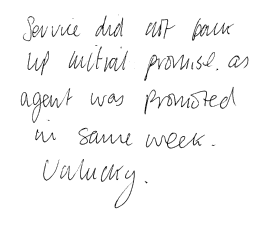 Service did not back
up initial promise. as
agent was promoted
in same week.
Unlucky.